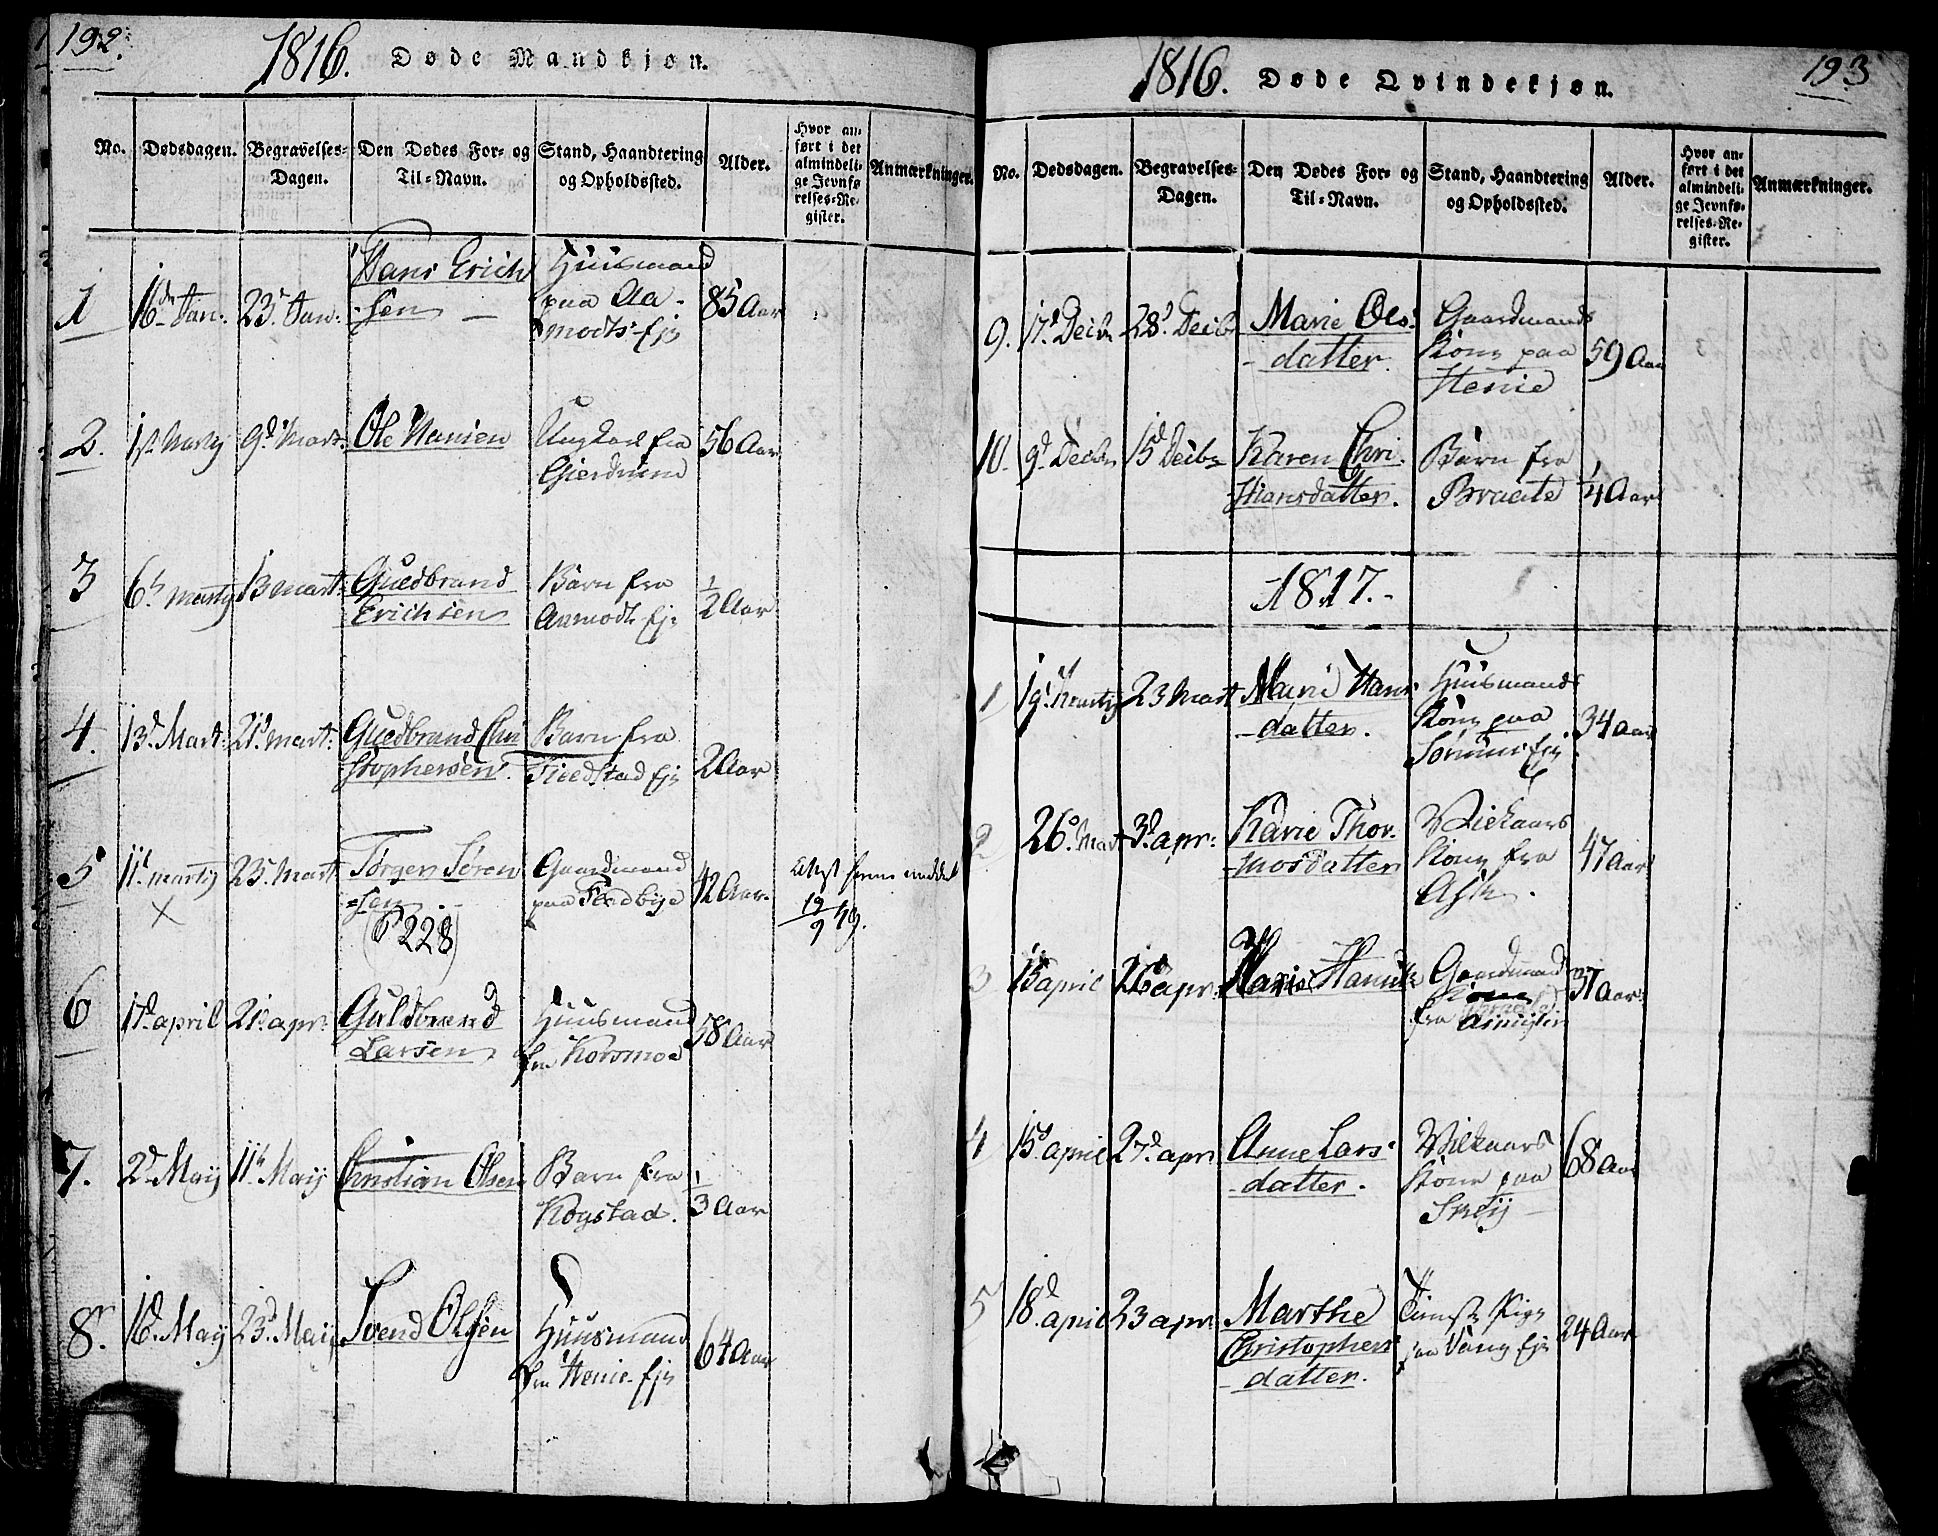 192.
1816. Døde Mandkjøn.
No. Dødsdagen. Begravelses-Dagen. Den Dødes For- og Til-Navn. Stand, Haandtering og Opholdssted. Alder. Hvor anført i det almindelige Jevnførelses-Register. Anmærkninger.
1 16de Jan. 23d Jan. Hans Erich
sen Huusmand
paa Aa-
modts Ejr 85 Aar
2. 1st Martij 9d Mart: Ole Hansen Ungkarl fra
Gierdrum 56 Aar
3 6te Martij 13 Mart: Guedbrand
Erichsen Barn fra
Aamodt Ejr 1/2 Aar
4. 13d Mart: 21d Mart: Guedbrand Chri
stophersen Barn fra
Tiedstad Ejr 2 Aar
5 11t Martij 23d Mart Jørgen Søren
=sen Gaardmand
paa 42 Aar.
X (P 228) 19/9 49.
6 17d april 21d apr: Guldbrand
Larsen Huusmand
fra Korsmoe 58 Aar
7. 2d Maij 11te Maij Christian Olsen Barn fra
Kogstad. 1/3 Aar
8. 16d Maij 23d Maij Svend Olsen Huusmand
fra Henie Ejr 64 Aar
193
1816. Døde Qvindekjøn.
No. Dødsdagen. Begravelses-Dagen. Den Dødes For- og Til-Navn. Stand, Haandtering og Opholdssted. Alder. Hvor anført i det almindelige Jevnførelses-Register. Anmærkninger.
9. 17d Decbr 28d Decbr Marie Ols-
datter. Gaardmands
Kone paa
Henie 59 Aar
10. 9d Decbr 15d Decbr Karen Chri-
stiansdatter. Barn fra
Braate 1/4 Aar
1817.
1 19d Martij 23 Mart Marie Hans-
datter. Huusmands
Kone paa
Sørum Ejr 34 Aar
2 26d Mart 3d apr: Karie Thor-
mosdatter Wilkaars
Kone fra
Ask. 47 Aar
3 15 april 26d apr: Marie Hansdtr Gaardmand
Kone
fra 37 Aar
4 15d april 27d apr: Anne Lars-
datter. Wilkaars
Kone paa
68 Aar
5 18d april 23 apr: Marthe
Christophers
datter. Tieneste Pige
paa Vang Ejr 24 Aar